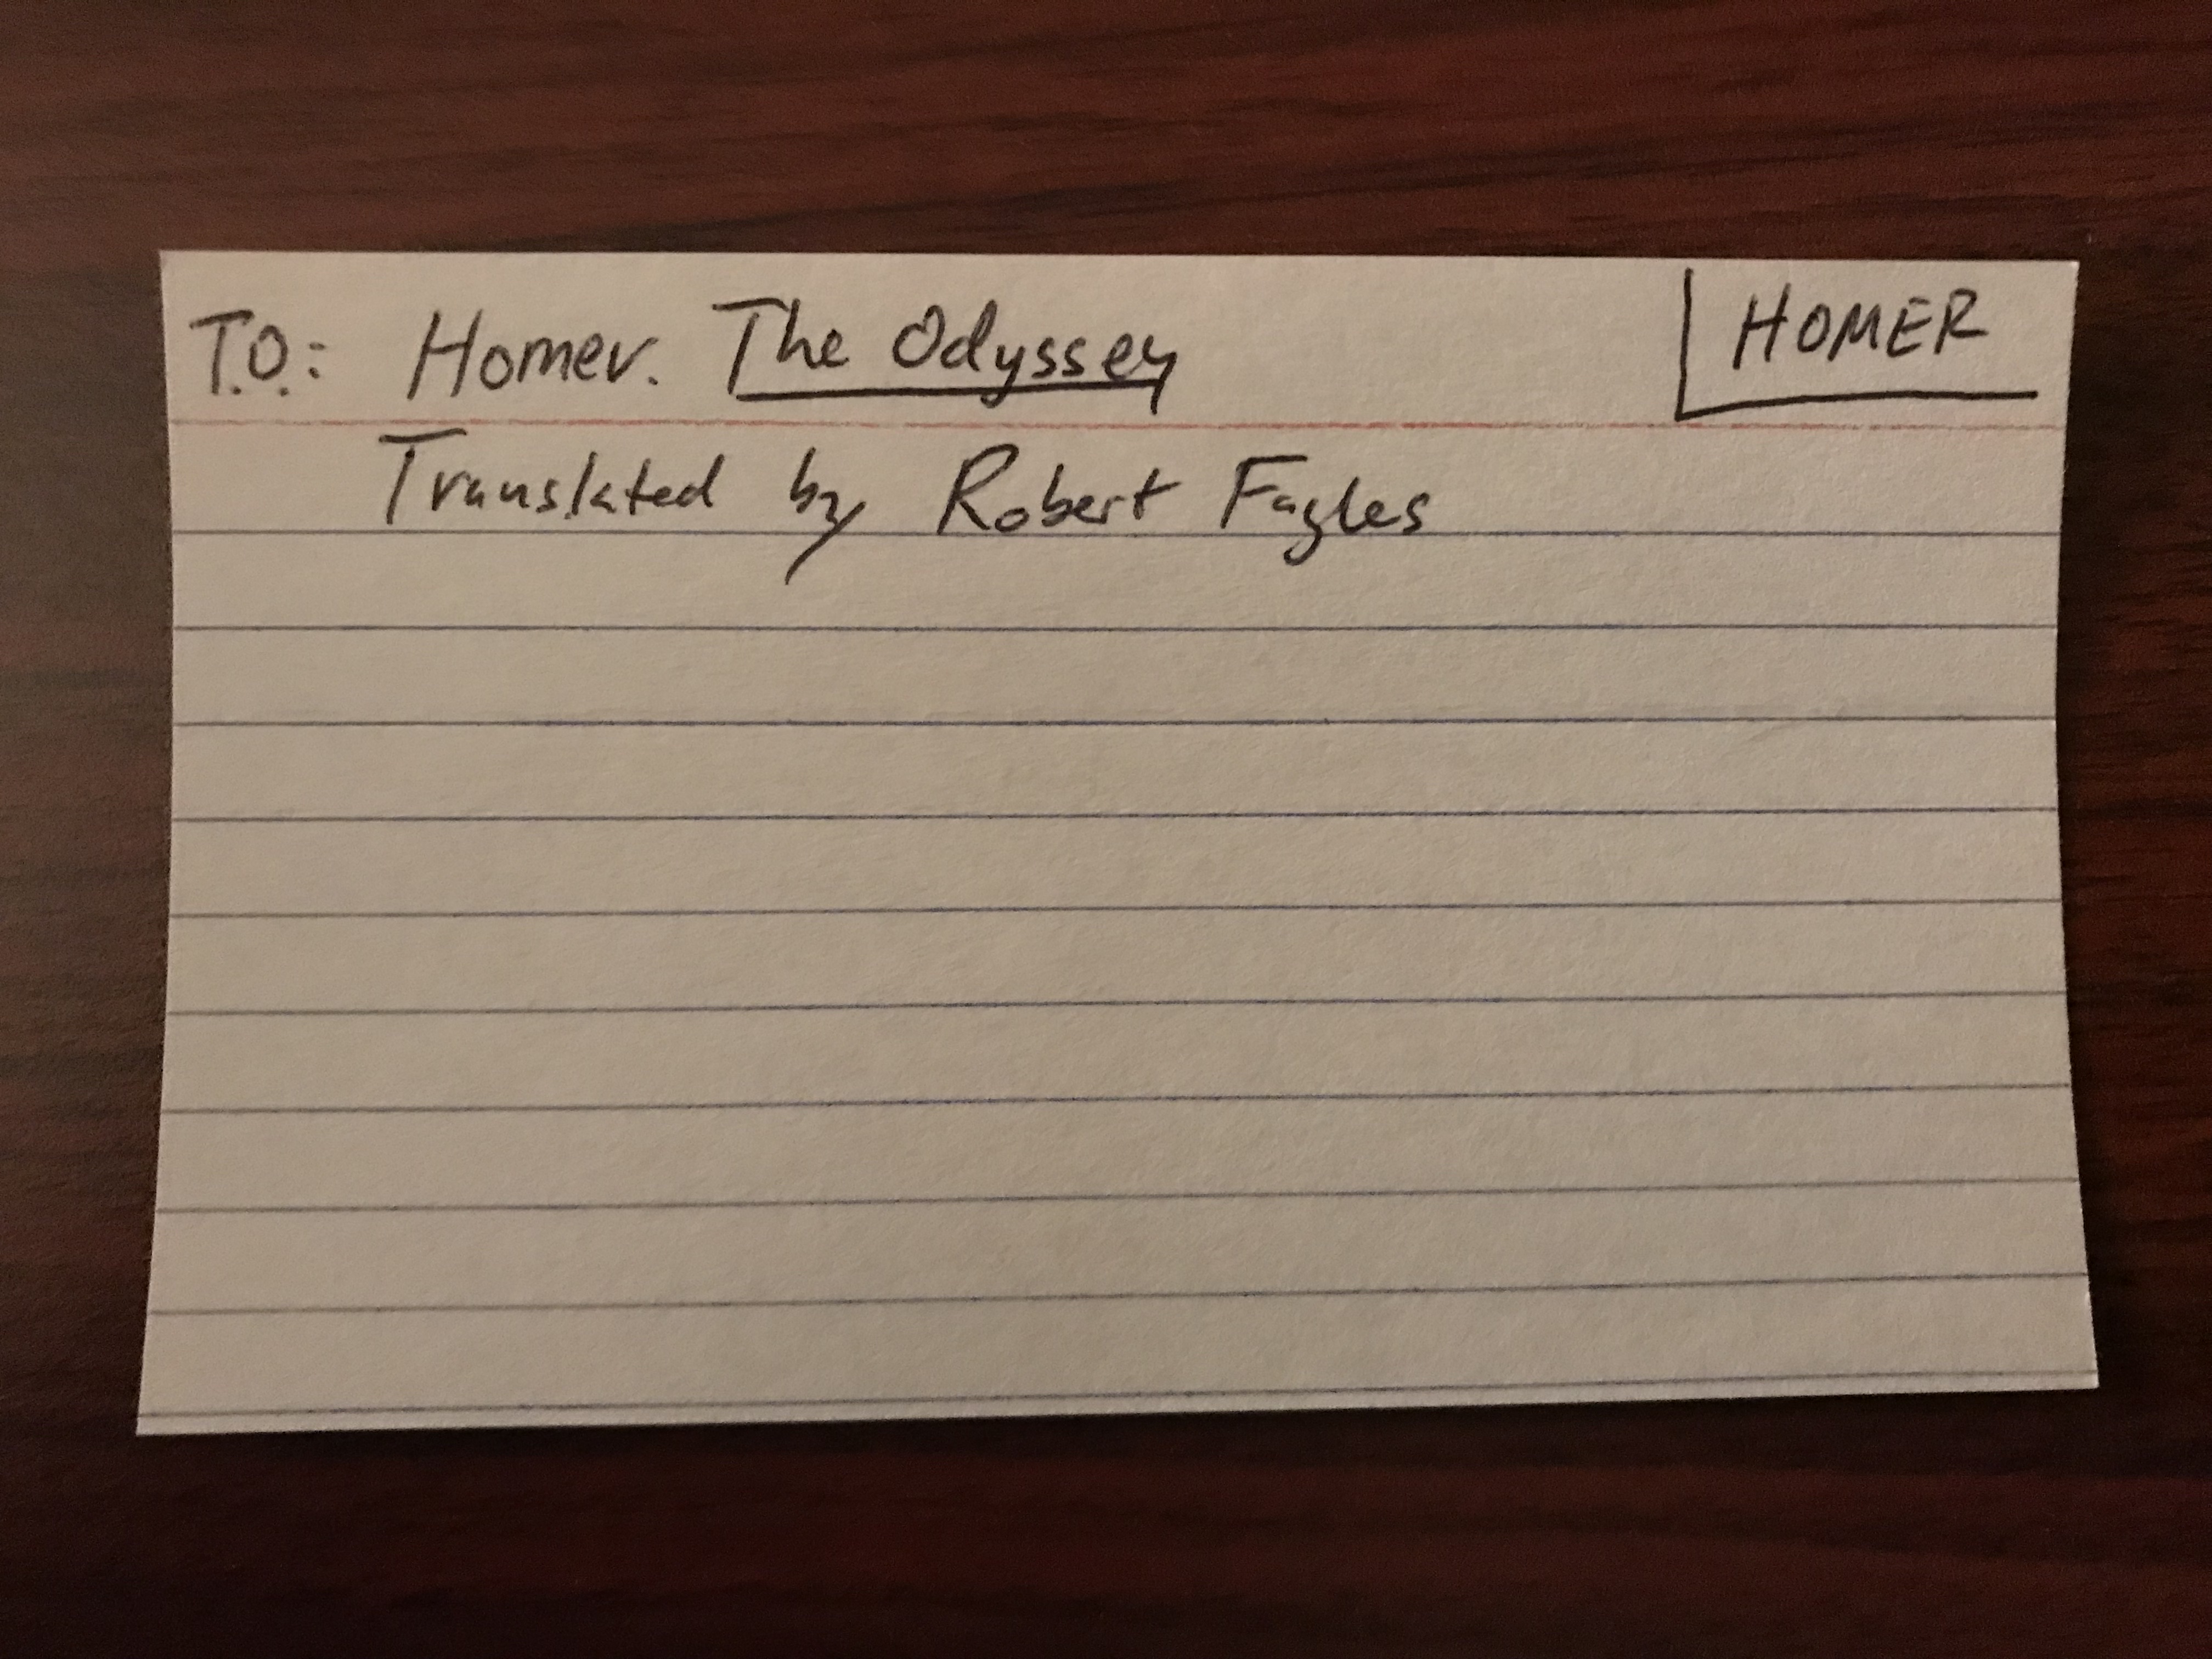 T.O.: Homer. The Odyssey
HOMER
Translated by Robert Fagles